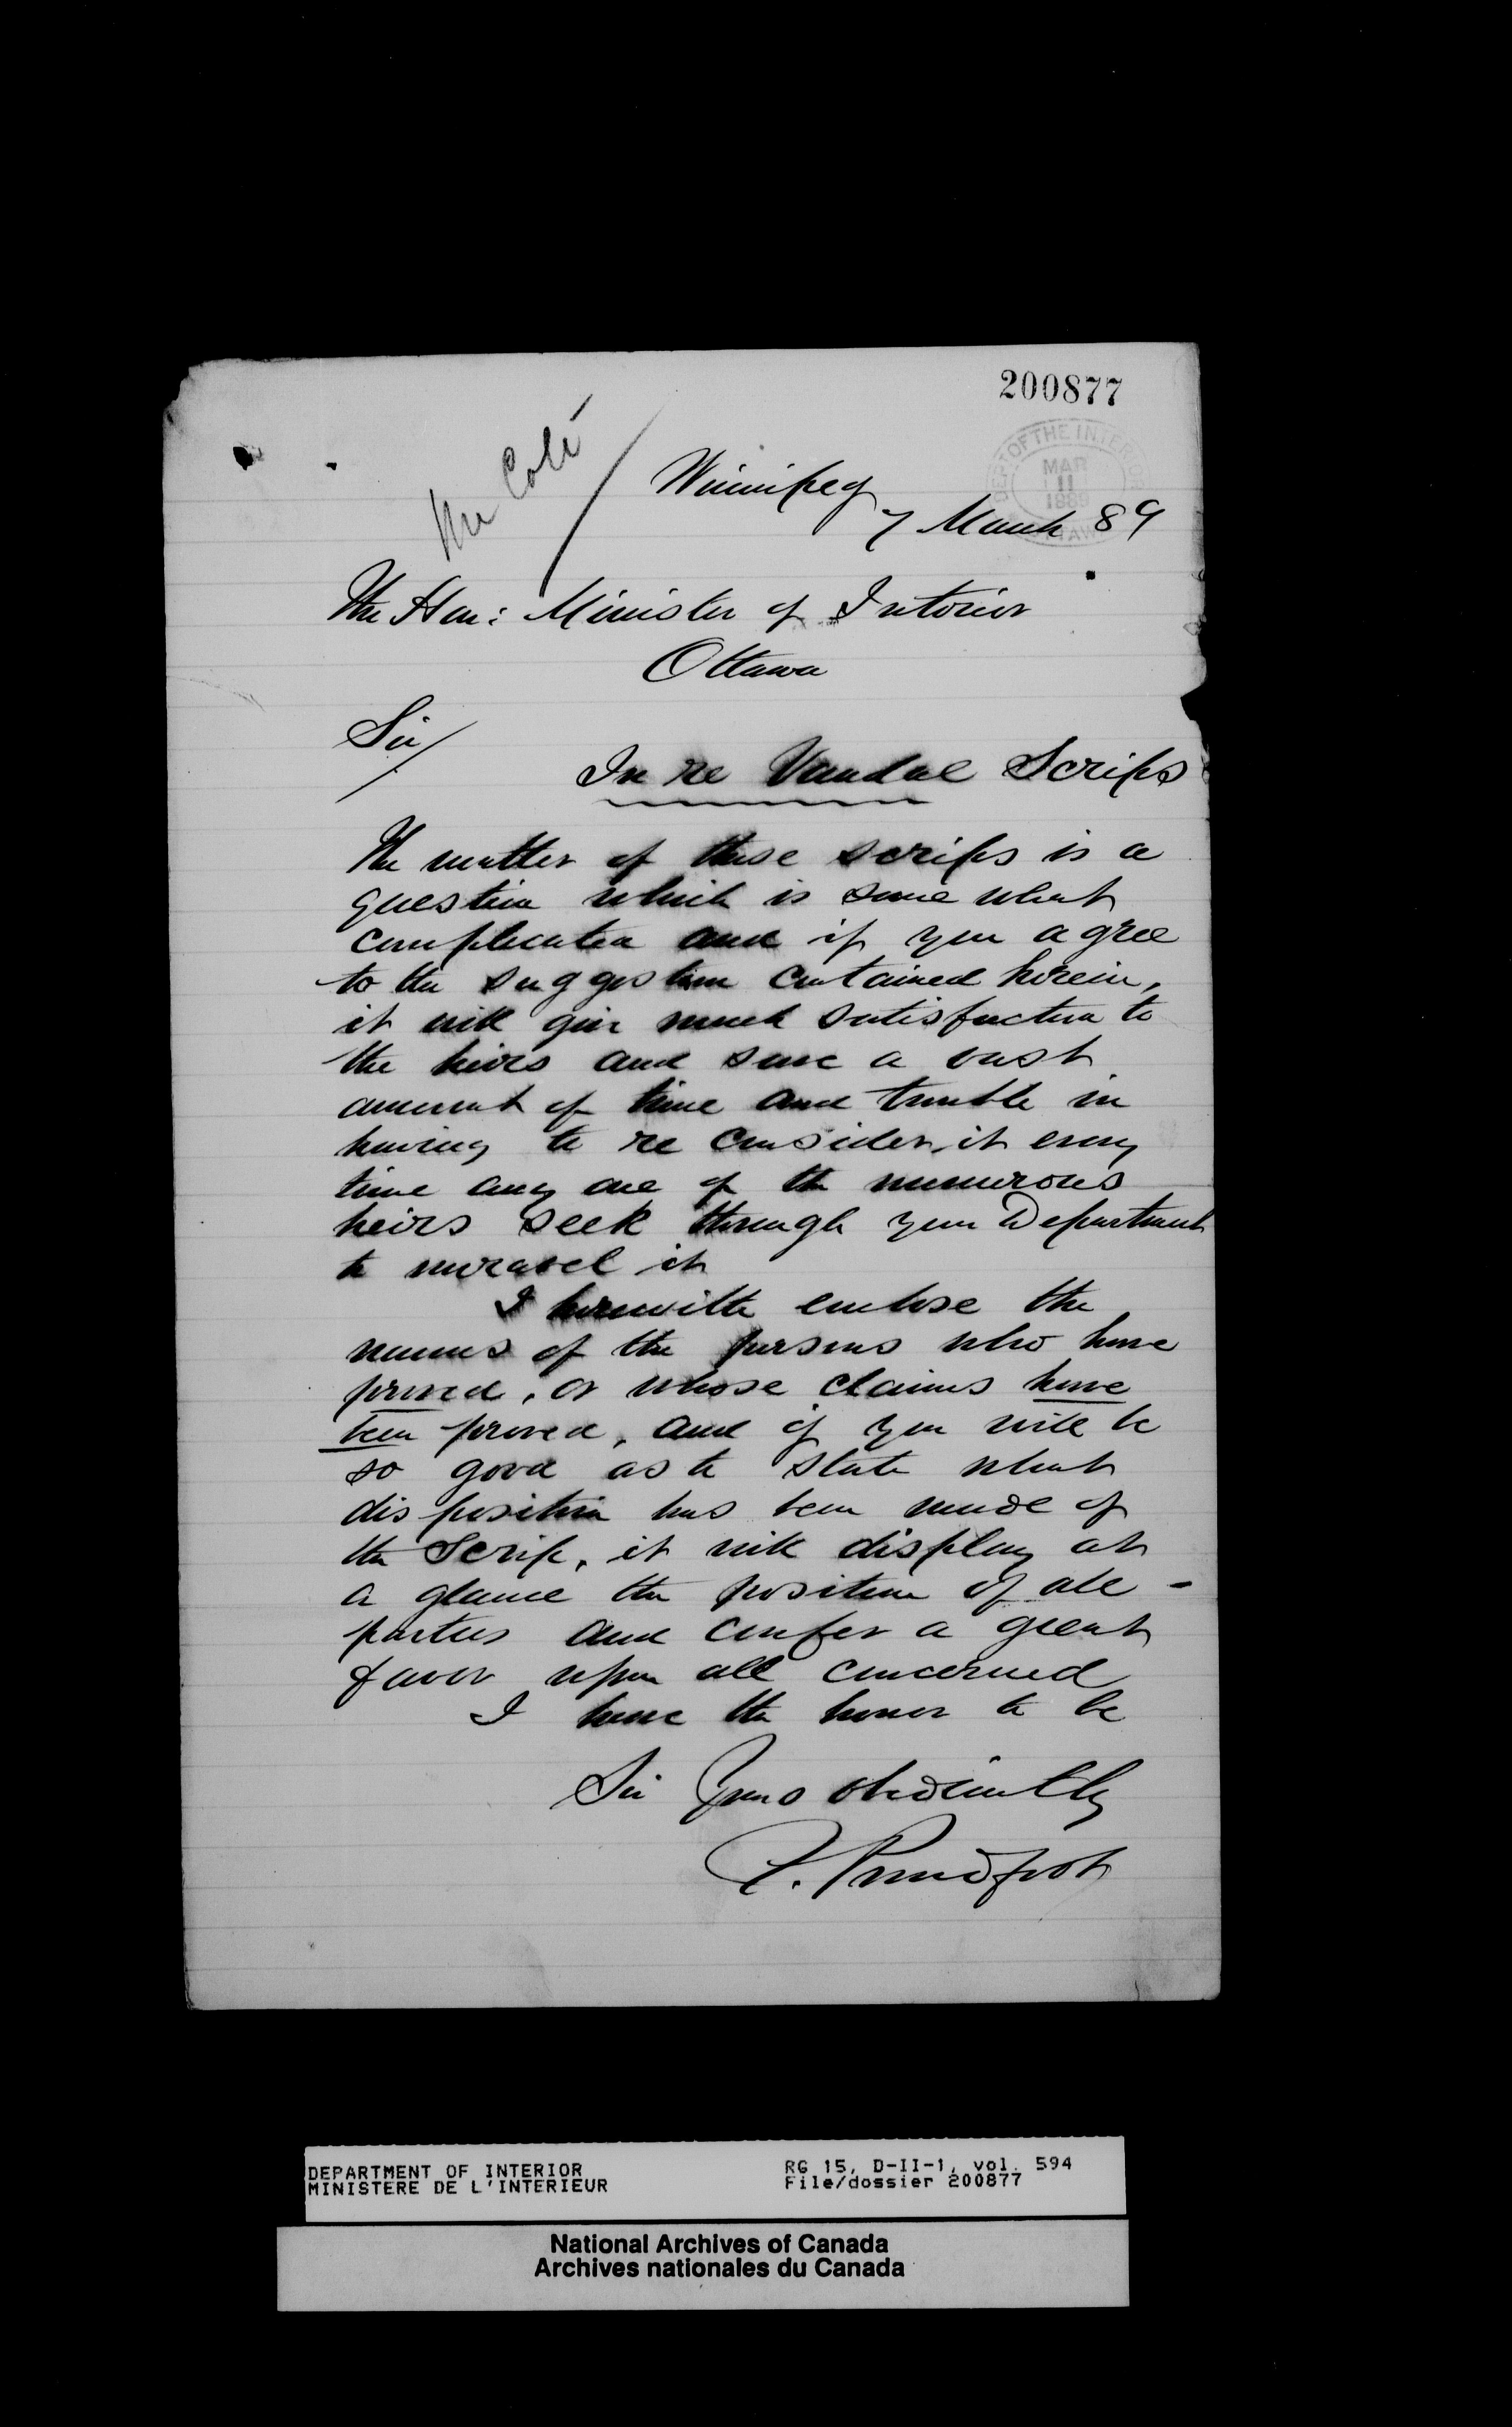 200877
DEPT OF THE INTERIOR
MAR
11
1889
OTTAWA
Mr Coté
Winnipeg
7 March 89
The Hon: Minister of Interior
Ottawa
Sir/
In re Vandal Scrips
The matter of these scrips is a
question which is some what
complicated and if you agree
to the suggestion contained herein,
it will give much satisfaction to
the heirs and save a vast
amount of time and trouble in
having to re consider it every
time any one of the numerous
heirs seek through your Department
to unravel it
I herewith enclose the
names of the persons who have
proved, or whose claims have
been proved, and if you will be
so good as to state what
disposition has been made of
the Scrip, it will display at
a glance the position of all -
parties and confer a great
favor upon all concerned
I have the honor to be
Sir Yours obediently
F. Proudfoot
DEPARTMENT OF INTERIOR
MINISTERE DE L'INTERIEUR
RG 15, D-II-1, vol. 594
File/dossier 200877
National Archives of Canada
Archives nationales du Canada